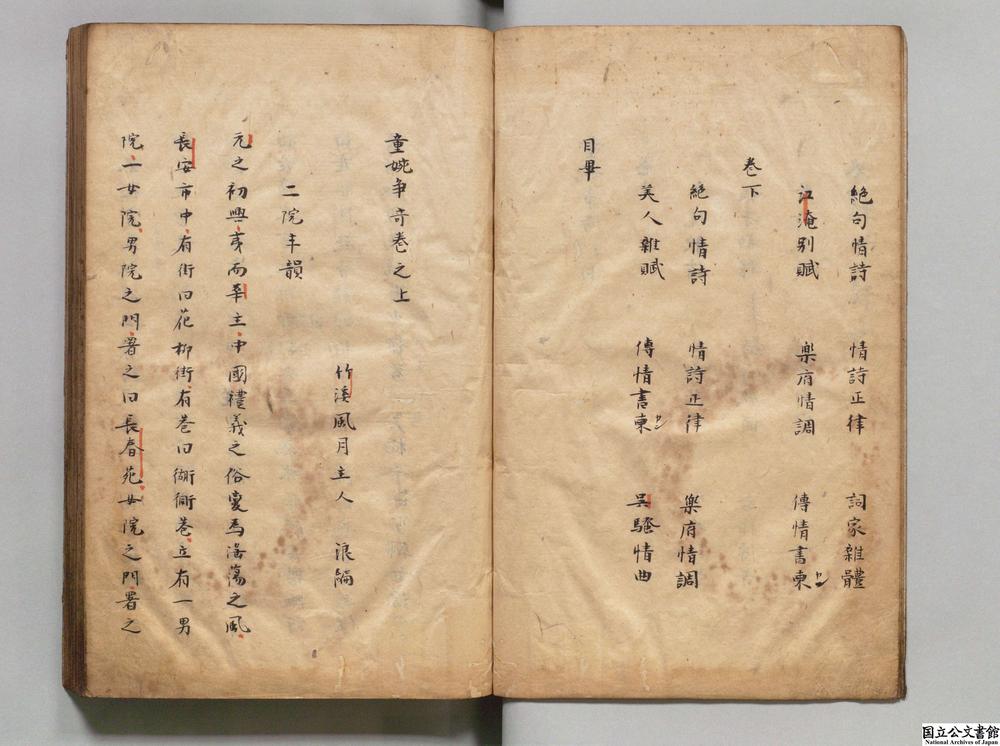 絶句情詩 情詩正律 詞家雜體
江淹別賦 楽府情調 傳情書柬
卷下
絶句情詩 情詩正律 楽府情調
美人雜賦 傳情書柬 呉騒情曲
目畢
童婉争奇卷之上
竹溪風月主人 浪編
二院丰韻
元之初興夷而華主中國禮義之俗変為淫蕩之風
長安市中有街曰花柳街有巷曰衚衕巷立有一男
院一女院男院之門署之曰長春苑女院之門署之
国立公文書館
National Archives of Japan